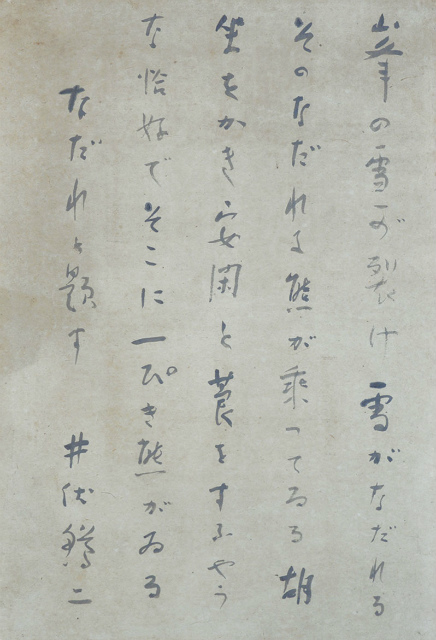 峯の雪が裂け 雪がなだれる
そのなだれに熊が乗つてゐる 胡
坐をかき安閑と莨をすふやう
な恰好でそこに一ぴき熊がゐる
なだれと題す 井伏鱒二